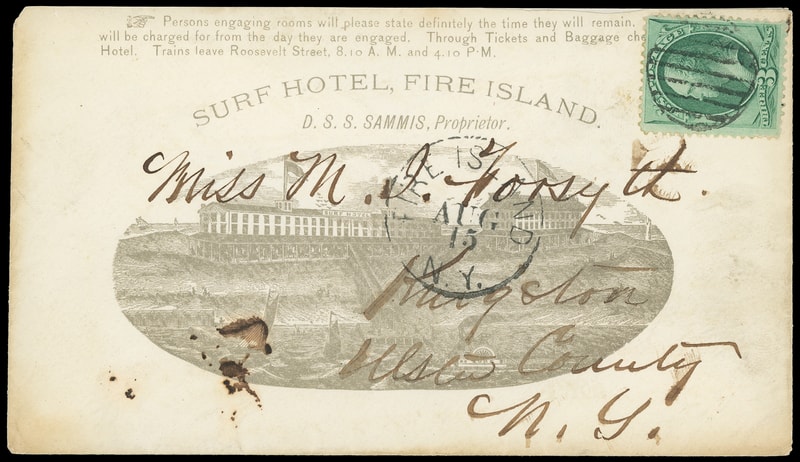 ☞ Persons engaging rooms will please state definitely the time they will remain.
will be charged for from the day they are engaged. Through Tickets and Baggage che
Hotel. Trains leave Roosevelt Street, 8.10 A. M. and 4.10 P.M.
SURF HOTEL, FIRE ISLAND.
D. S. S. SAMMIS, Proprietor.
Miss M. I. Forsyth.
SURF HOTEL
FIRE ISLAND
AUG
15
N.Y.
Kingston
Ulster County
N. Y.